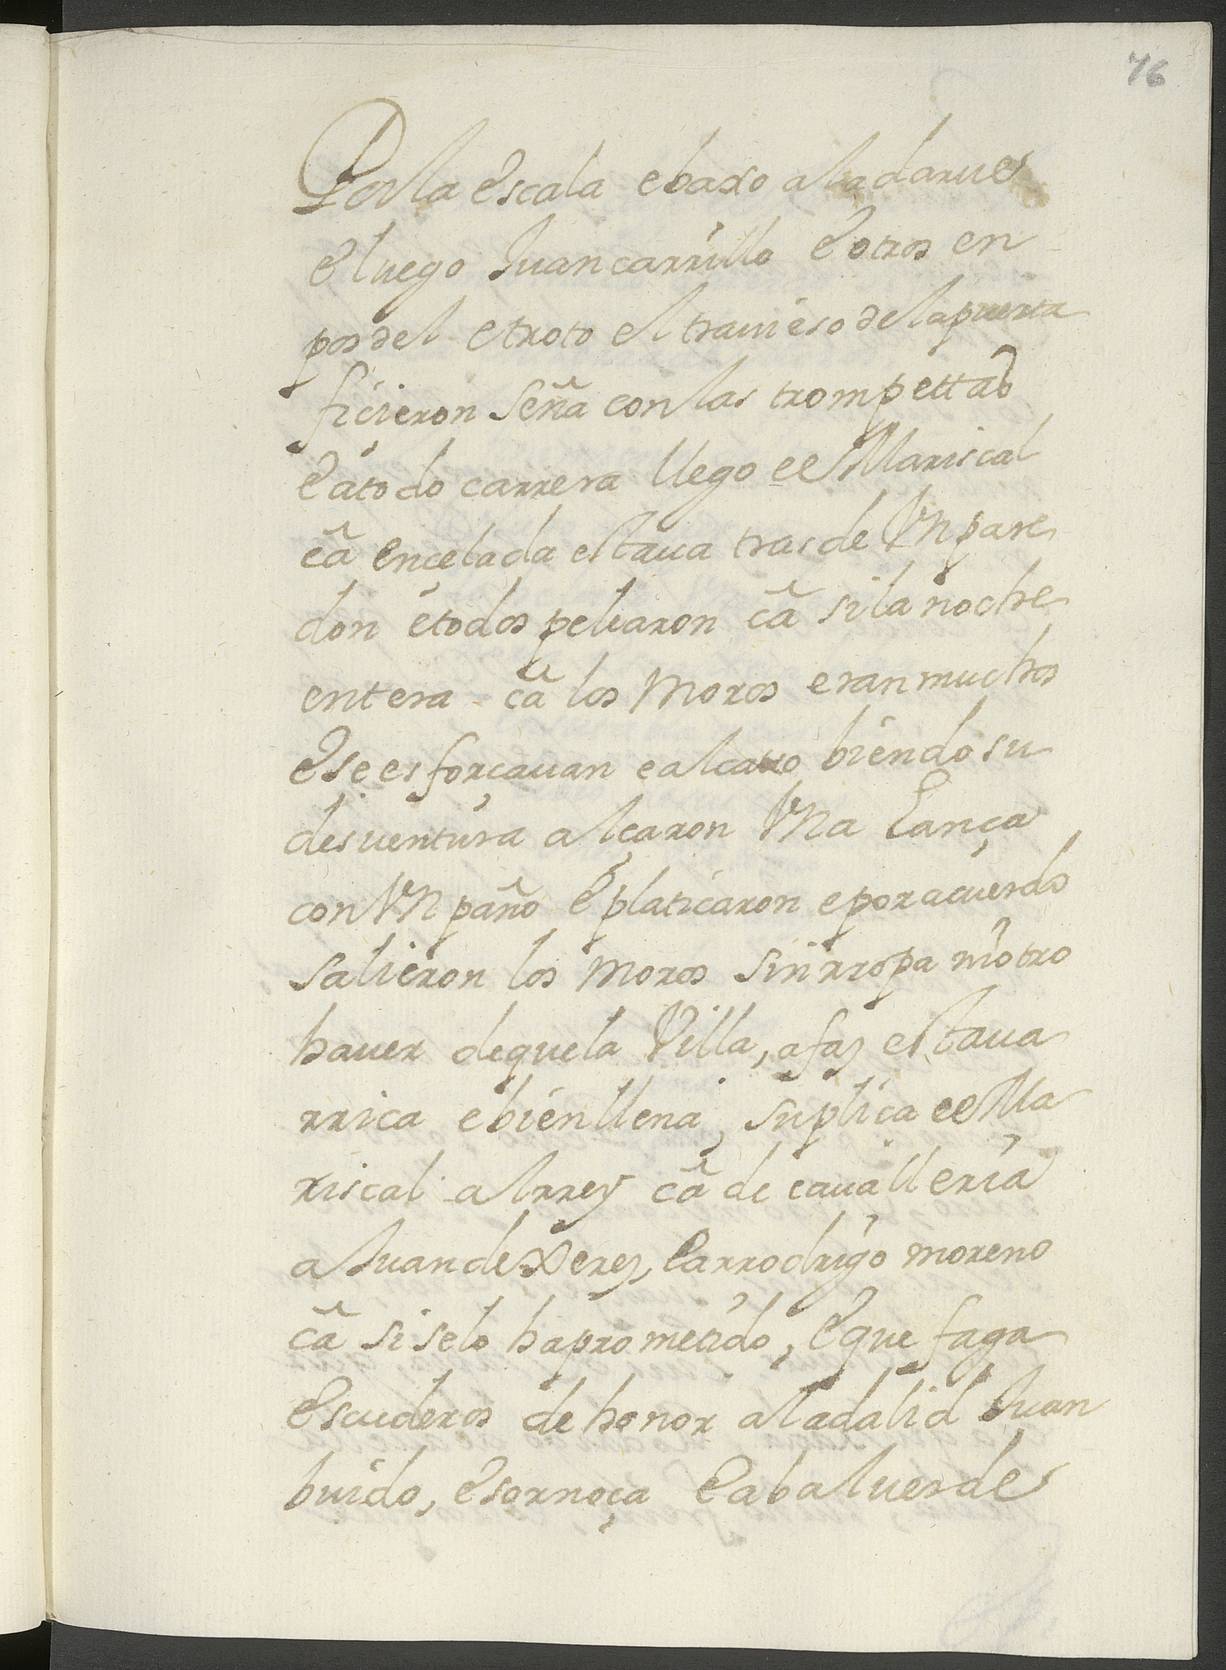 76
Por la escala e baxo al adarue
E luego Juan carrillo E otros en
pos del e troto el trauieso de la puerta
ficieron señá con las trompettas
E a todo carrera llego ee Mariscal
cã encelada estaua tras de Vn pare
don e todos pelearon cã si la noche
entera cã los Moros eran muchos
E se esforçauan e al cauo biendo su
desuentura alçaron Vna Lança
con Vn paño E platicaron e por acuerdo
salieron los Moros sin rropa ni otro
hauer de quela Villa, a faz estaua
rrica e bien llena, suplica ee Ma
riscal al rrey cã de cauallería
a Juan de Xerez, E a rrodrigo moreno
cã si se lo ha prometido, E que faga
Escuderos de honor al adalid Juan
buido, E sornoça E a balverde